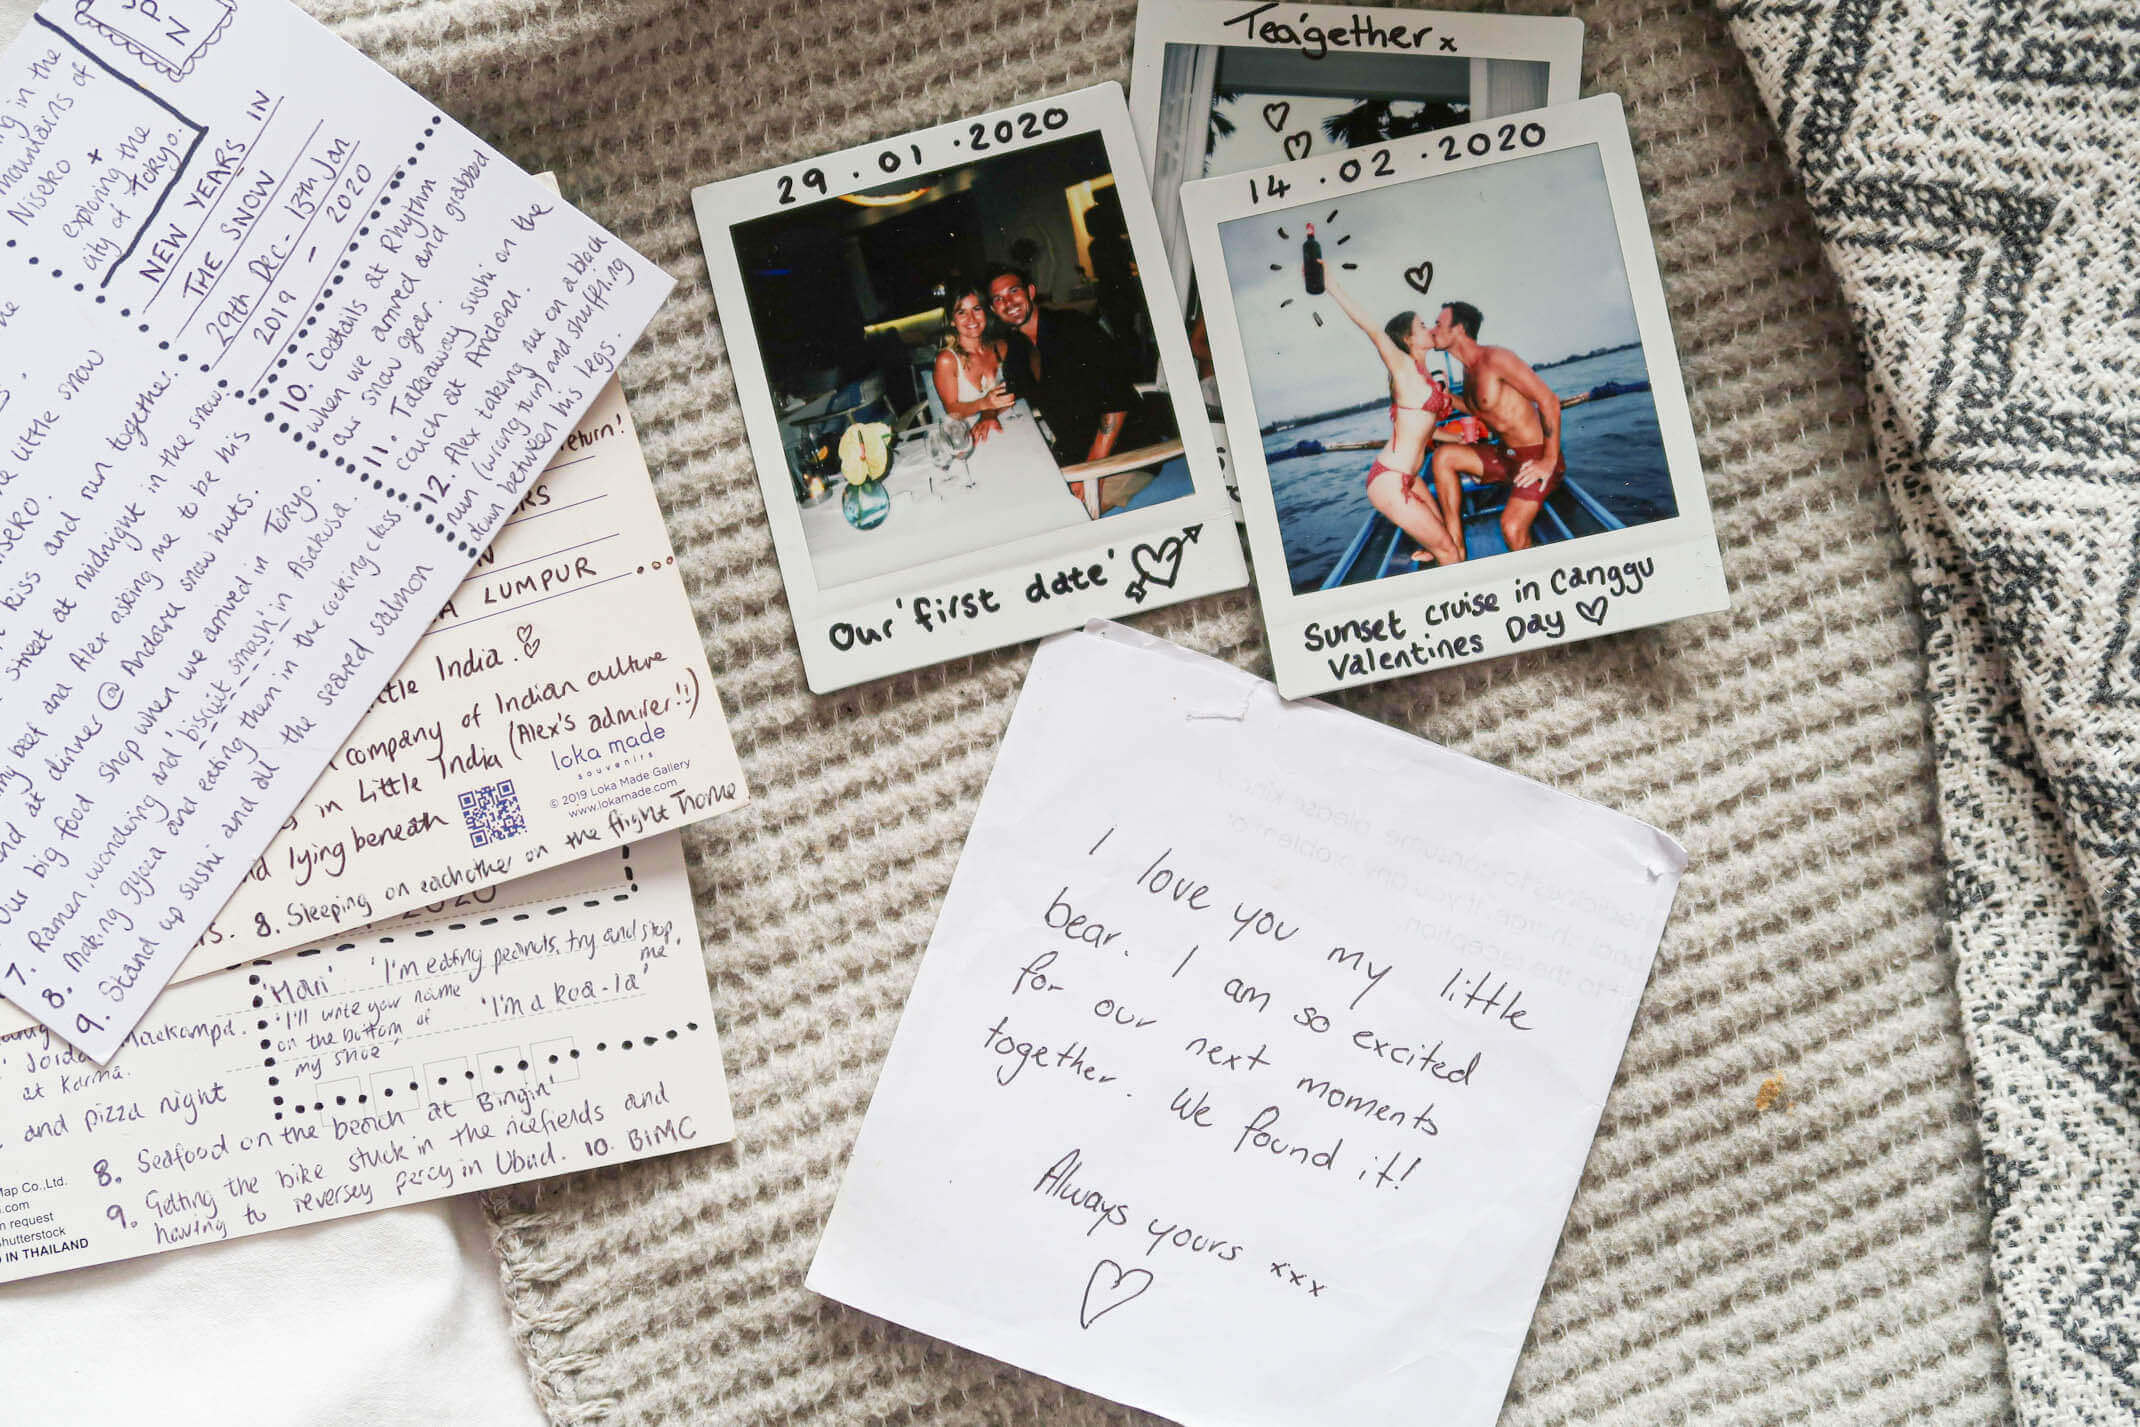 P
N
ing in the
mountains of
Niseko +
exploring the
city of Tokyo.
NEW YEARS IN
THE SNOW
29th Dec - 13th Jan
2019 - 2020
10. Cocktails at Rhythm
when we arrived and grabbed
our snow gear.
11. Takeaway sushi on the
couch at Andaru.
12. Alex taking me on a black
run (wrong turn) and shuffling
down between his legs.
little snow
Niseko.
kiss and run together.
street at midnight in the snow.
beef and Alex asking me to be his
and at dinner @ Andaru snow huts.
our big food shop when we arrived in Tokyo.
7. Ramen, wondering and 'biscuit smash' in Asakusa.
8. Making gyoza and eating them in the cooking class.
9. Stand up sushi and all the seared salmon
return!
RS
LUMPUR
ttle India.
company of Indian culture
in Little India (Alex's admirer!!)
loka made
souvenirs
© 2019 Loka Made Gallery
www.lokamade.com
lying beneath
8. Sleeping on eachother on the flight home
2020
'Hari' 'I'm eating peanuts, try and stop me.'
'I'll write your name
on the bottom of
my shoe' 'I'm a koa-la'
at Karma.
and pizza night
8. Seafood on the beach at Bingin'
9. Getting the bike stuck in the ricefields and
having to reversey percy in Ubud. 10. BIMC
Map Co.,Ltd.
.com
n request
hutterstock
IN THAILAND
Tea'gether x
29.01.2020
Our 'first date'
14.02.2020
Sunset cruise in Canggu
Valentines Day
I love you my little
bear. I am so excited
for our next moments
together. We found it!
Always yours xxx